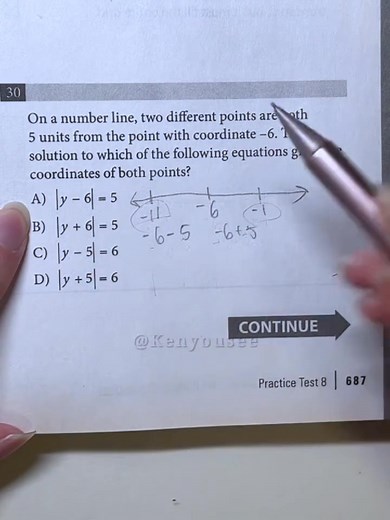 30
On a number line, two different points are
5 units from the point with coordinate –6.
solution to which of the following equations
coordinates of both points?
A) |y – 6| = 5
B) |y + 6| = 5
C) |y – 5| = 6
D) |y + 5| = 6
-11 -6 -1
-6-5 -6+5
CONTINUE
@Kenyousee
Practice Test 8 | 687